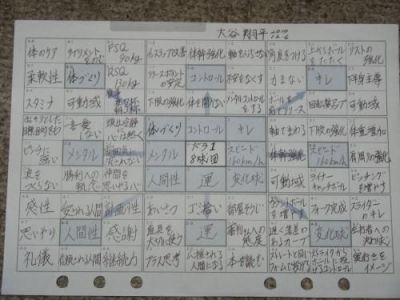 大谷 翔平
体のケア サプリメントをのむ FSQ 90kg インステップ改善 体幹強化 軸をぶらさない 角度をつける 上からボールをたたく リストの強化
柔軟性 体づくり RSQ 130kg リリースポイントの安定 コントロール 不安をなくす 力まない キレ 下半身主導
スタミナ 可動域 下肢の強化 メンタルコントロールをする ボールを前でリリース 回転数アップ
はっきりとした目標、目的をもつ 一喜一憂しない 頭は冷静に心は熱く 体づくり コントロール キレ 軸でまわる 下肢の強化 体重増加
ピンチに強い メンタル メンタル ドラ1 8球団 スピード160km/h 体幹強化 スピード160km/h 肩周りの強化
波をつくらない 勝利への執念 仲間を思いやる心 人間性 運 変化球 可動域 ライナーキャッチボール ピッチングを増やす
感性 愛される人間 計画性 あいさつ ゴミ拾い 部屋そうじ カウントボールを増やす フォーク完成 スライダーのキレ
思いやり 人間性 感謝 道具を大切に使う 運 審判さんへの態度 遅く落差のあるカーブ 変化球 左打者への決め球
礼儀 信頼される人間 継続力 プラス思考 応援される人間になる 本を読む ストレートと同じフォームで投げる ストライクからボールに投げるコントロール 奥行きをイメージ